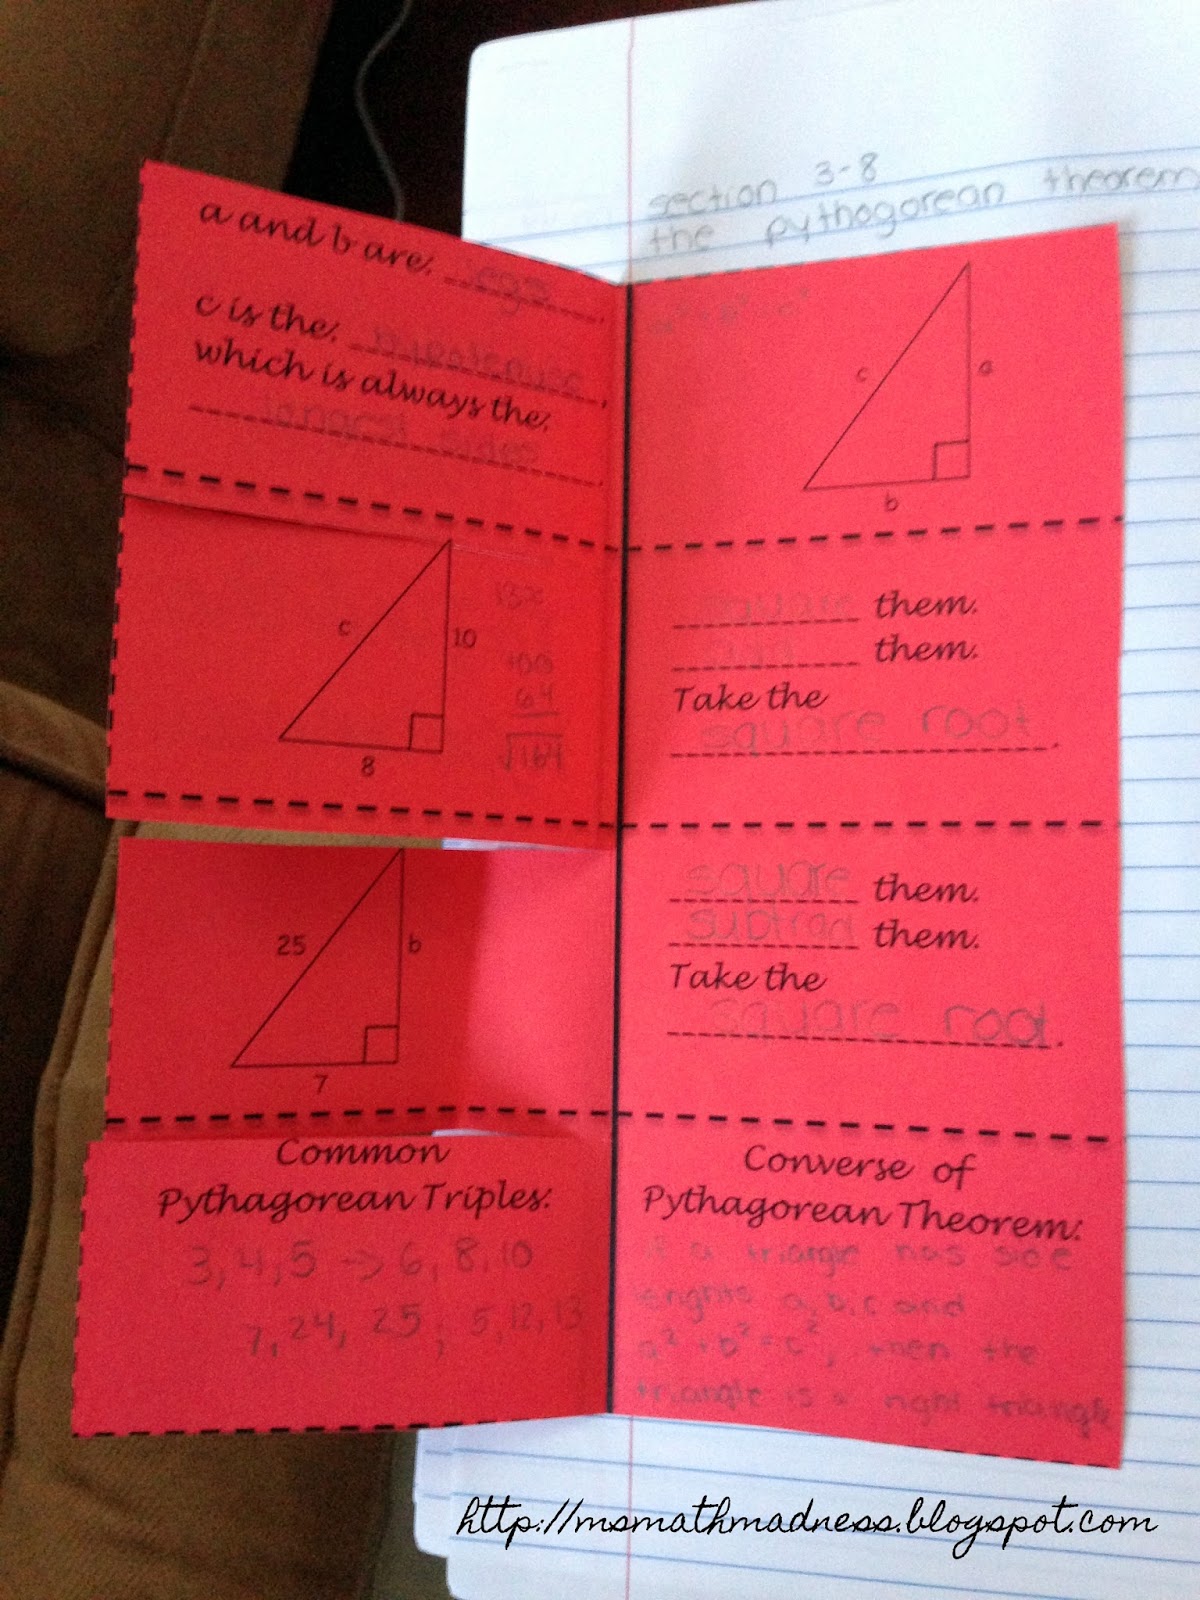 section 3-8
the pythogorean theorem
a and b are: legs.
c is the: hypotenuse,
which is always the:
longest sides.
a² + b² = c²
c
a
b
c
10
8
13x
100
64
√164
square them.
add them.
Take the
square root.
25
b
7
square them.
subtract them.
Take the
square root.
Common
Pythagorean Triples:
3, 4, 5 → 6, 8, 10
7, 24, 25; 5, 12, 13
Converse of
Pythagorean Theorem:
if a triangle has side
lengths a, b, c and
a² + b² = c², then the
triangle is a right triangle
http://msmathmadness.blogspot.com